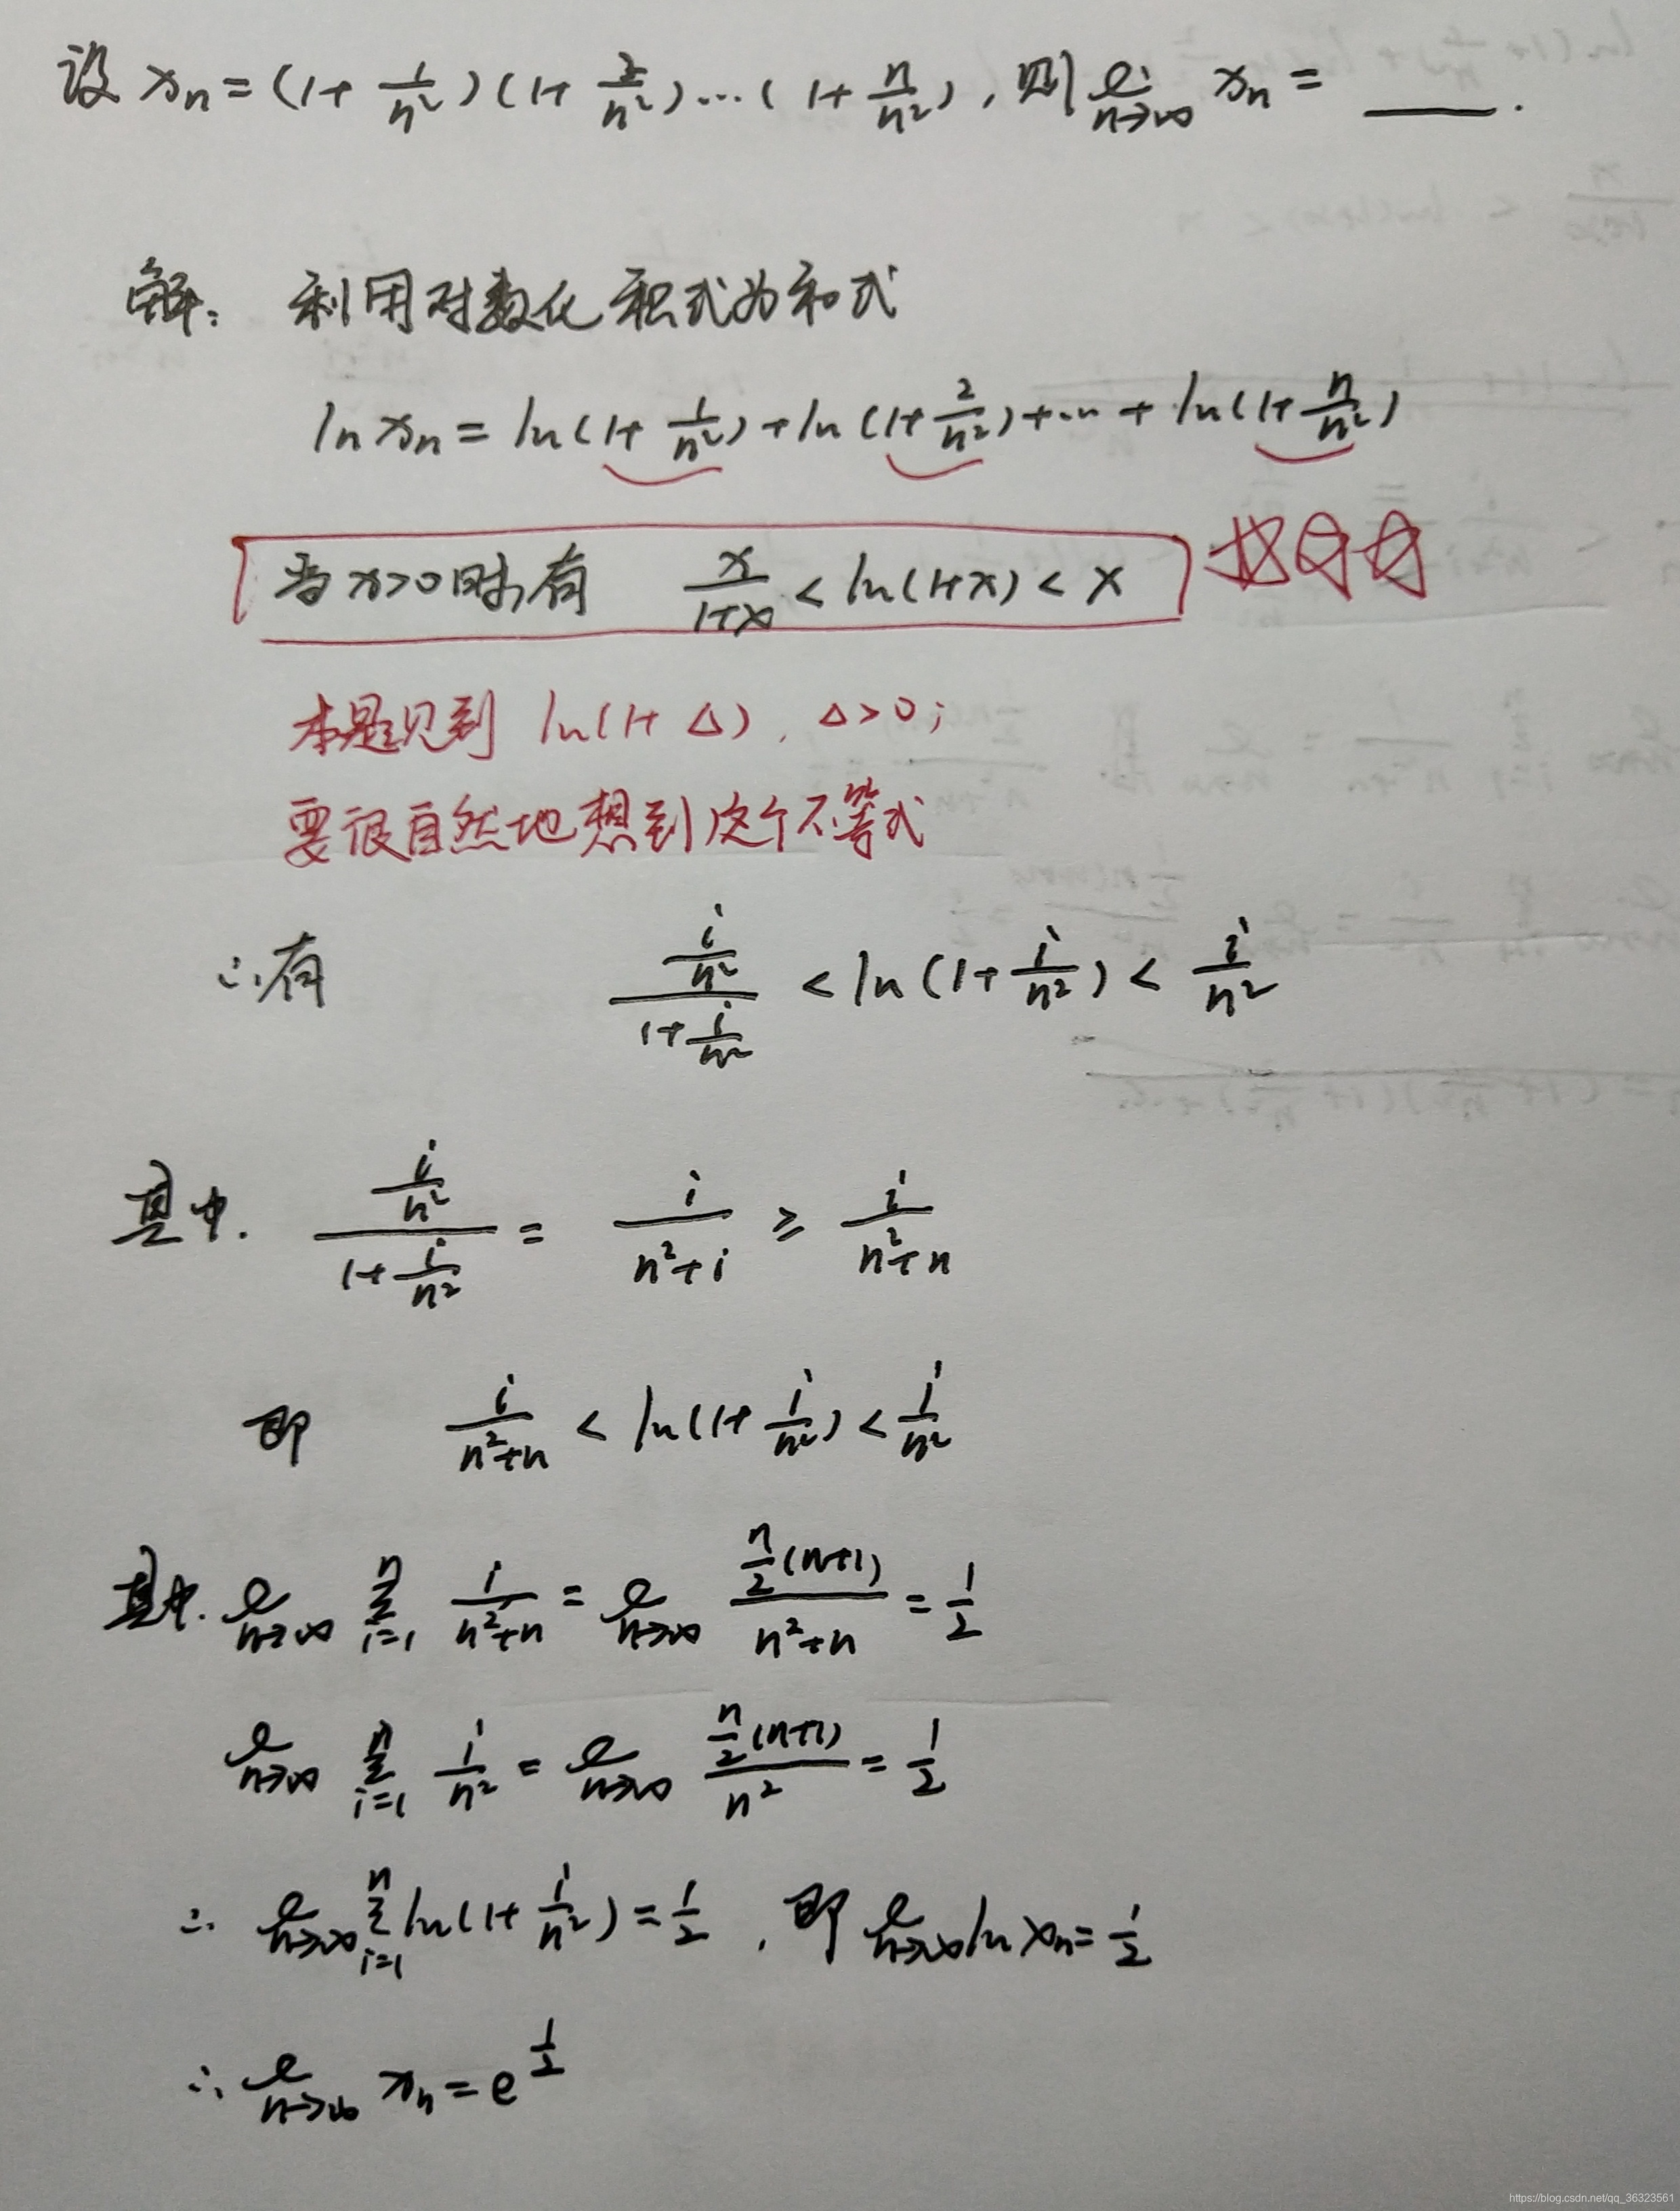 设 xn = (1+ 1/n²)(1+ 2/n²)…(1+ n/n²), 则 lim n→∞ xn = ____.
解: 利用对数化积式为和式
ln xn = ln(1+ 1/n²) + ln(1+ 2/n²) + … + ln(1+ n/n²)
当 x>0 时,有 x/(1+x) < ln(1+x) < x ☆☆☆
本题见到 ln(1+ Δ), Δ>0;
要很自然地想到这个不等式
∴有 (i/n²)/(1+ i/n²) < ln(1+ i/n²) < i/n²
其中. (i/n²)/(1+ i/n²) = i/(n²+i) ≥ i/(n²+n)
即 i/(n²+n) < ln(1+ i/n²) < i/n²
其中. lim n→∞ Σ i=1 n i/(n²+n) = lim n→∞ (n/2 (n+1))/(n²+n) = 1/2
lim n→∞ Σ i=1 n i/n² = lim n→∞ (n/2 (n+1))/n² = 1/2
∴ lim n→∞ Σ i=1 n ln(1+ i/n²) = 1/2, 即 lim n→∞ ln xn = 1/2
∴ lim n→∞ xn = e^(1/2)
https://blog.csdn.net/qq_36323561